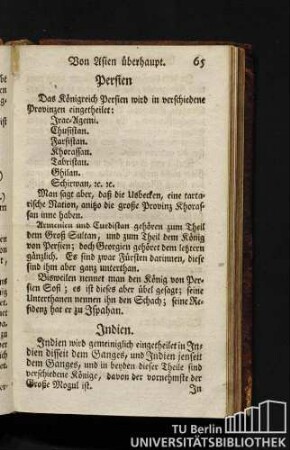 Von Asien überhaupt. 65
Persien
Das Königreich Persien wird in verschiedene
Provinzen eingetheilet:
Irac-Agemi.
Chusistan.
Farsistan.
Khorassan.
Tabristan.
Ghilan.
Schirwan, ꝛc. ꝛc.
Man sagt aber, daß die Usbecken, eine tarta-
rische Nation, anitzo die große Provinz Khoras-
san inne haben.
Armenien und Curdistan gehören zum Theil
dem Groß Sultan, und zum Theil dem König
von Persien; doch Georgien gehöret dem letztern
gänzlich. Es sind zwar Fürsten darinnen, diese
sind ihm aber ganz unterthan.
Bisweilen nennet man den König von Per-
sien Sofi; es ist dieses aber übel gesagt; seine
Unterthanen nennen ihn den Schach; seine Re-
sidenz hat er zu Ispahan.
Indien.
Indien wird gemeiniglich eingetheilet in In-
dien disseit dem Ganges, und Indien jenseit
dem Ganges, und in beyden dieser Theile sind
verschiedene Könige, davon der vornehmste der
Große Mogul ist.
In
TU Berlin
UNIVERSITÄTSBIBLIOTHEK